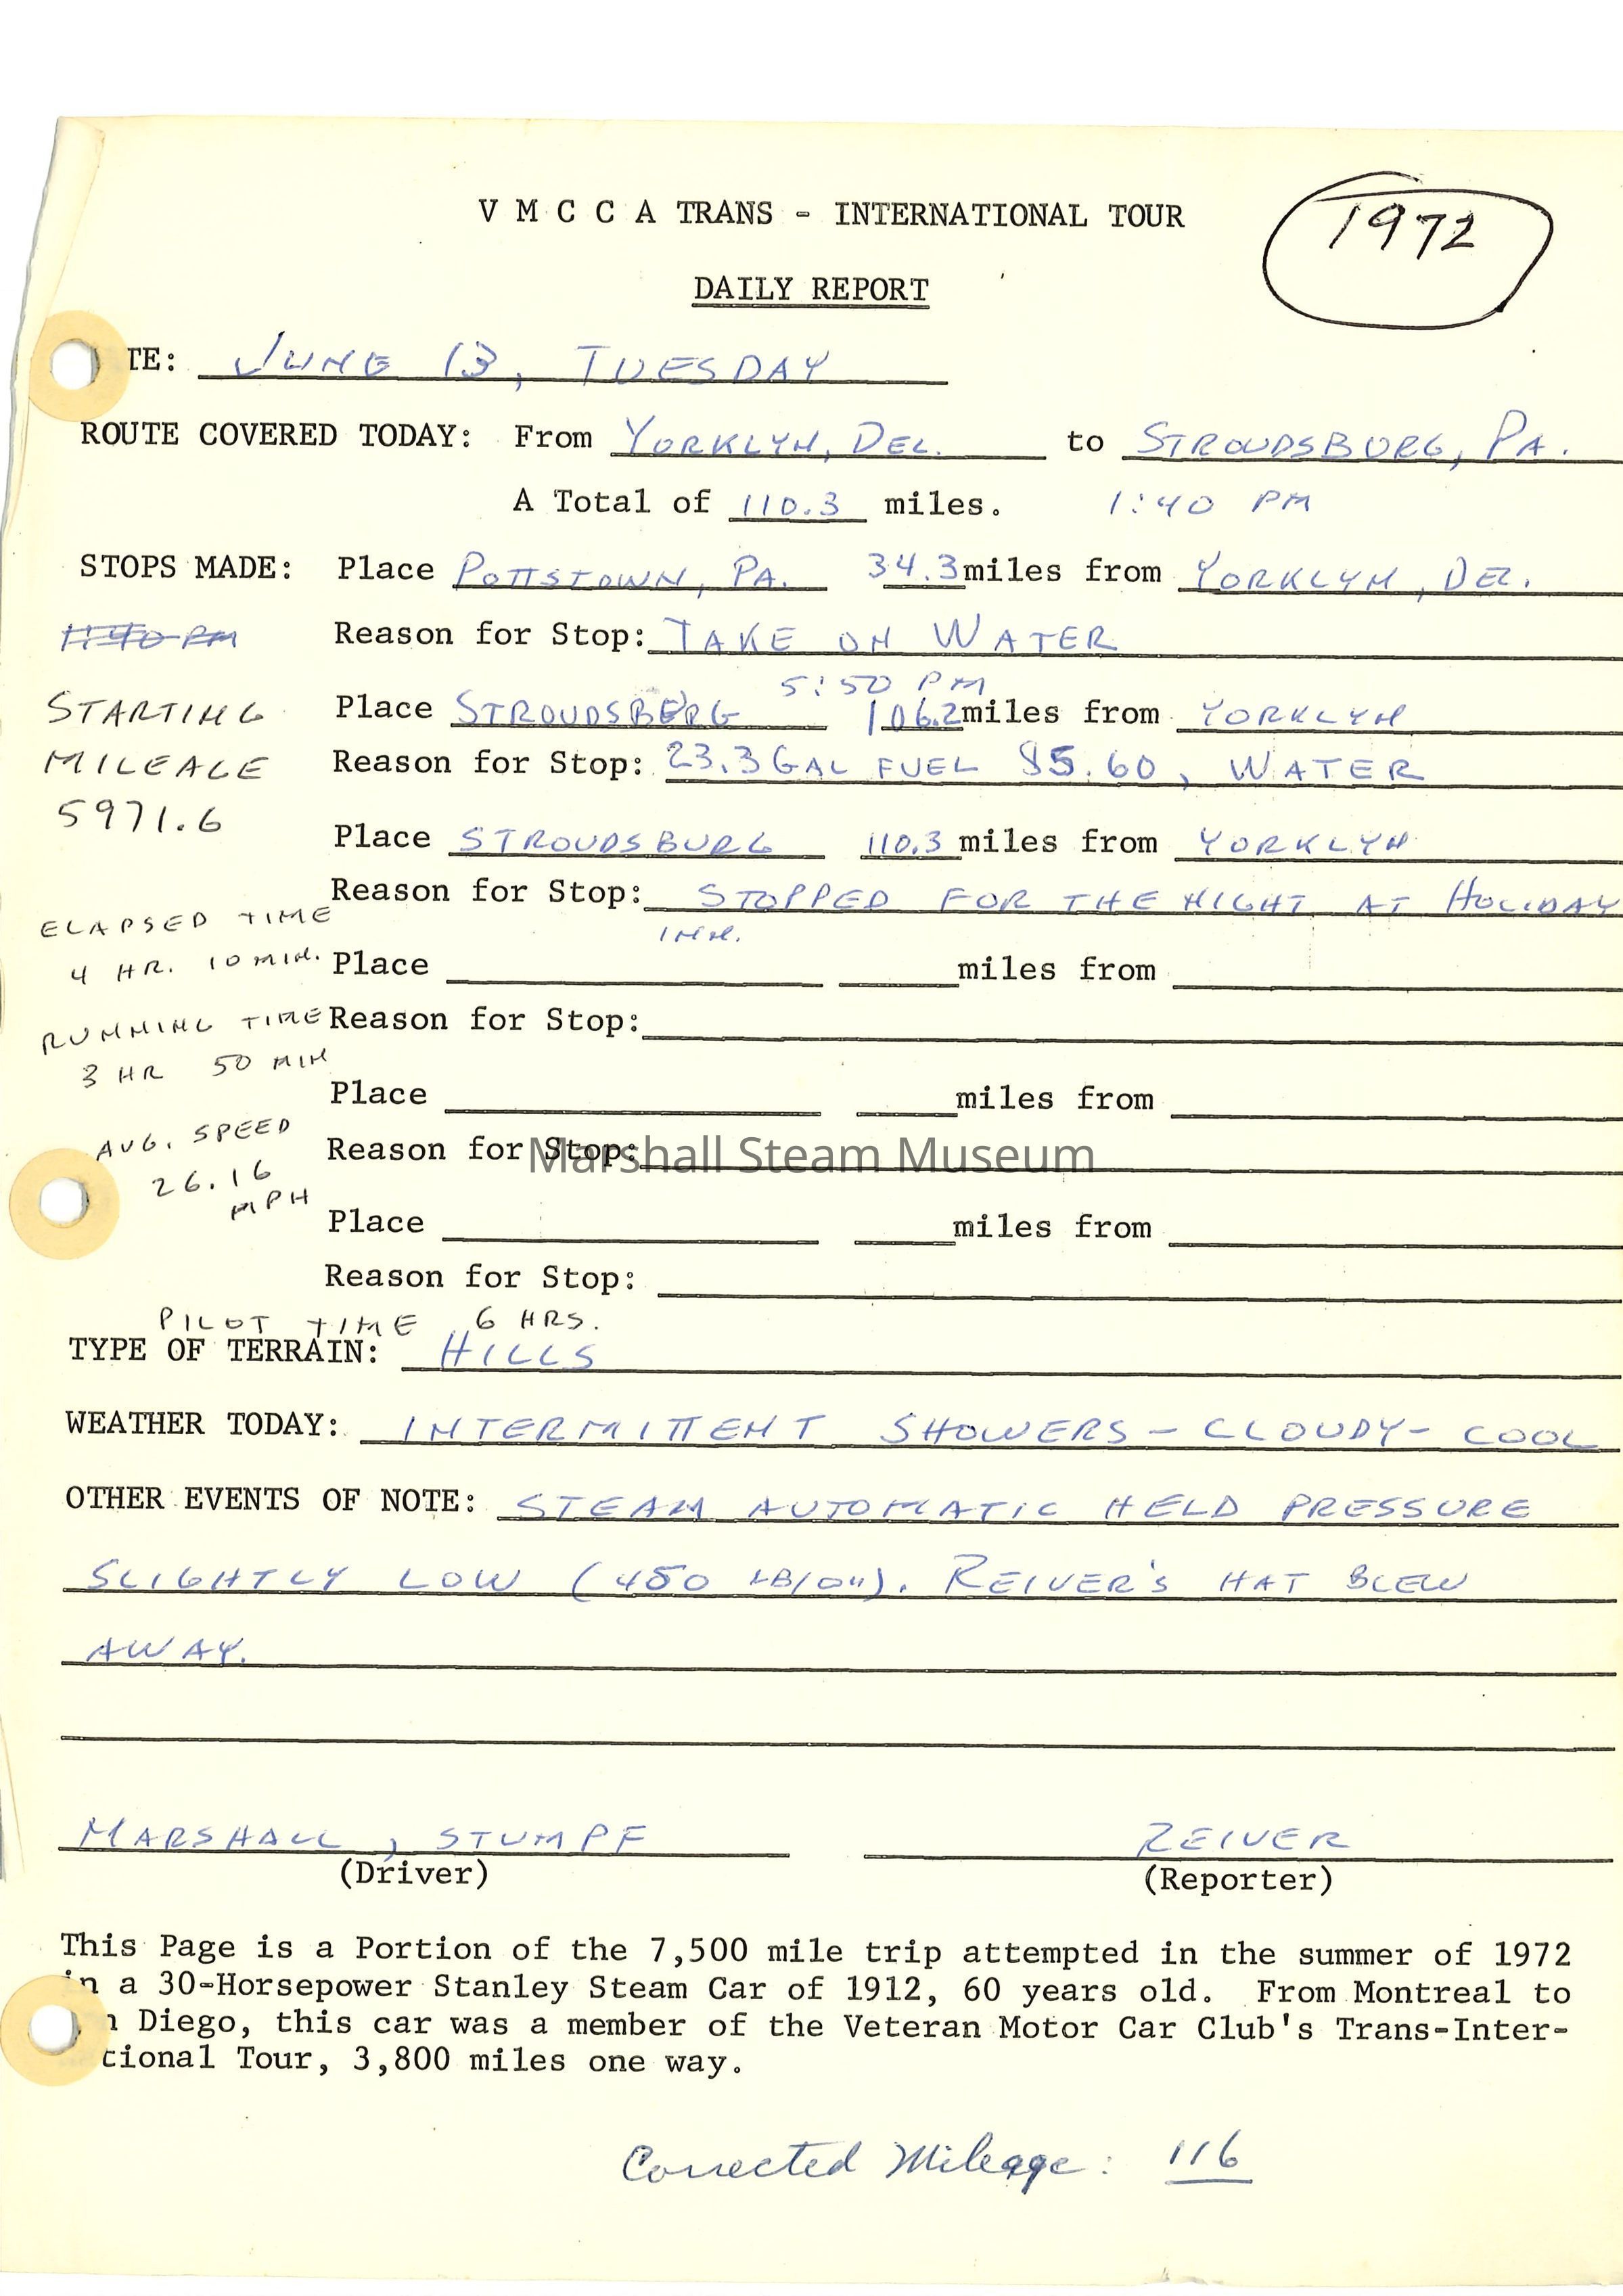 V M C C A TRANS - INTERNATIONAL TOUR
1972
DAILY REPORT
TE: JUNE 13, TUESDAY
ROUTE COVERED TODAY: From YORKLYN, DEL. to STROUDSBURG, PA.
A Total of 110.3 miles. 1:40 PM
STOPS MADE: Place POTTSTOWN, PA. 34.3 miles from YORKLYN, DEL.
Reason for Stop: TAKE ON WATER
5:50 PM
STARTING Place STROUDSBERG 106.2 miles from YORKLYN
MILEAGE Reason for Stop: 23.3 GAL FUEL $5.60, WATER
5971.6
Place STROUDSBURG 110.3 miles from YORKLYN
Reason for Stop: STOPPED FOR THE NIGHT AT HOLIDAY
INN.
ELAPSED TIME
4 HR. 10 MIN. Place miles from
RUNNING TIME Reason for Stop:
3 HR 50 MIN
Place miles from
AVG. SPEED
Reason for Stop:
Marshall Steam Museum
26.16
MPH
Place miles from
Reason for Stop:
PILOT TIME 6 HRS.
TYPE OF TERRAIN: HILLS
WEATHER TODAY: INTERMITTENT SHOWERS - CLOUDY - COOL
OTHER EVENTS OF NOTE: STEAM AUTOMATIC HELD PRESSURE
SLIGHTLY LOW (450 LB/□"). REIVER'S HAT BLEW
AWAY.
MARSHALL, STUMPF REIVER
(Driver) (Reporter)
This Page is a Portion of the 7,500 mile trip attempted in the summer of 1972
in a 30-Horsepower Stanley Steam Car of 1912, 60 years old. From Montreal to
n Diego, this car was a member of the Veteran Motor Car Club's Trans-Inter-
tional Tour, 3,800 miles one way.
Corrected Mileage: 116